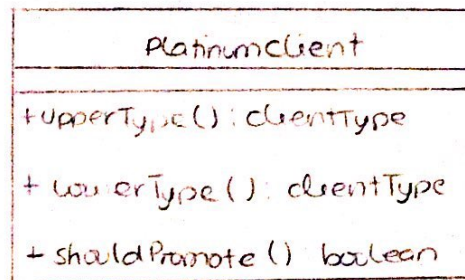 PlatinumClient
+upperType(): clientType
+ lowerType(): clientType
+ shouldPromote() boolean